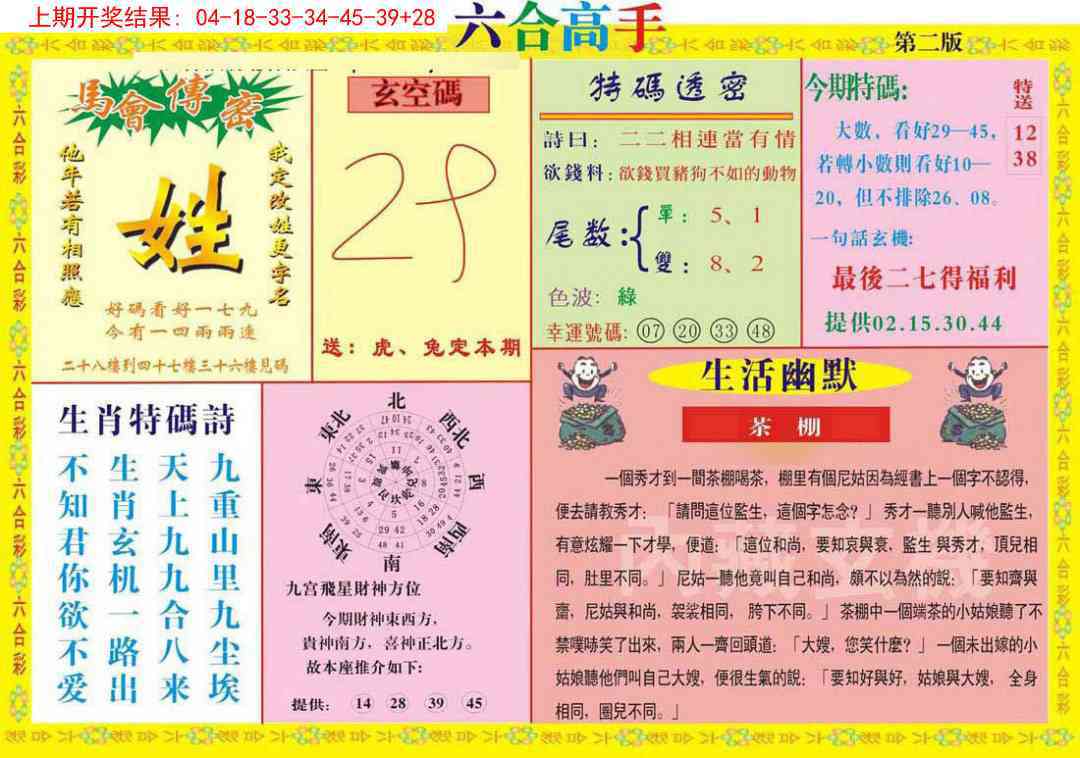 上期开奖结果：04-18-33-34-45-39+28
六合高手
第二版
馬會傳密
他年若有相照應
姓
我定改姓更字名
好碼看好一七九
今有一四兩兩連
二十八樓到四十七樓三十六樓見碼
玄空碼
29
送：虎、兔定本期
特碼透密
詩曰：二二相連當有情
欲錢料:欲錢買豬狗不如的動物
尾数:
單：5、1
雙：8、2
色波：綠
幸運號碼: 07 20 33 48
今期特碼:
特送
12
38
大數，看好29—45，
若轉小數則看好10—
20，但不排除26、08。
一句話玄機:
最後二七得福利
提供02.15.30.44
生肖特碼詩
不生天九
知肖上重
君玄九山
你机九里
欲一合九
不路八尘
爱出来埃
北
東北
西北
東
西
東南
西南
南
九宫飛星財神方位
今期財神東西方，
貴神南方，喜神正北方。
故本座推介如下:
提供: 14 28 39 45
生活幽默
茶棚
一個秀才到一間茶棚喝茶，棚里有個尼姑因為經書上一個字不認得，
便去請教秀才：「請問這位監生，這個字怎念？」秀才一聽別人喊他監生，
有意炫耀一下才學，便道：「這位和尚，要知哀與衰，監生與秀才，頂兒相
同，肚里不同。」尼姑一聽他竟叫自己和尚，頗不以為然的說：「要知齊與
齏，尼姑與和尚，袈裟相同，胯下不同。」茶棚中一個端茶的小姑娘聽了不
禁噗哧笑了出來，兩人一齊回頭道：「大嫂，您笑什麼？」一個未出嫁的小
姑娘聽他們叫自己大嫂，便很生氣的說：「要知好與好，姑娘與大嫂，全身
相同，圈兒不同。」